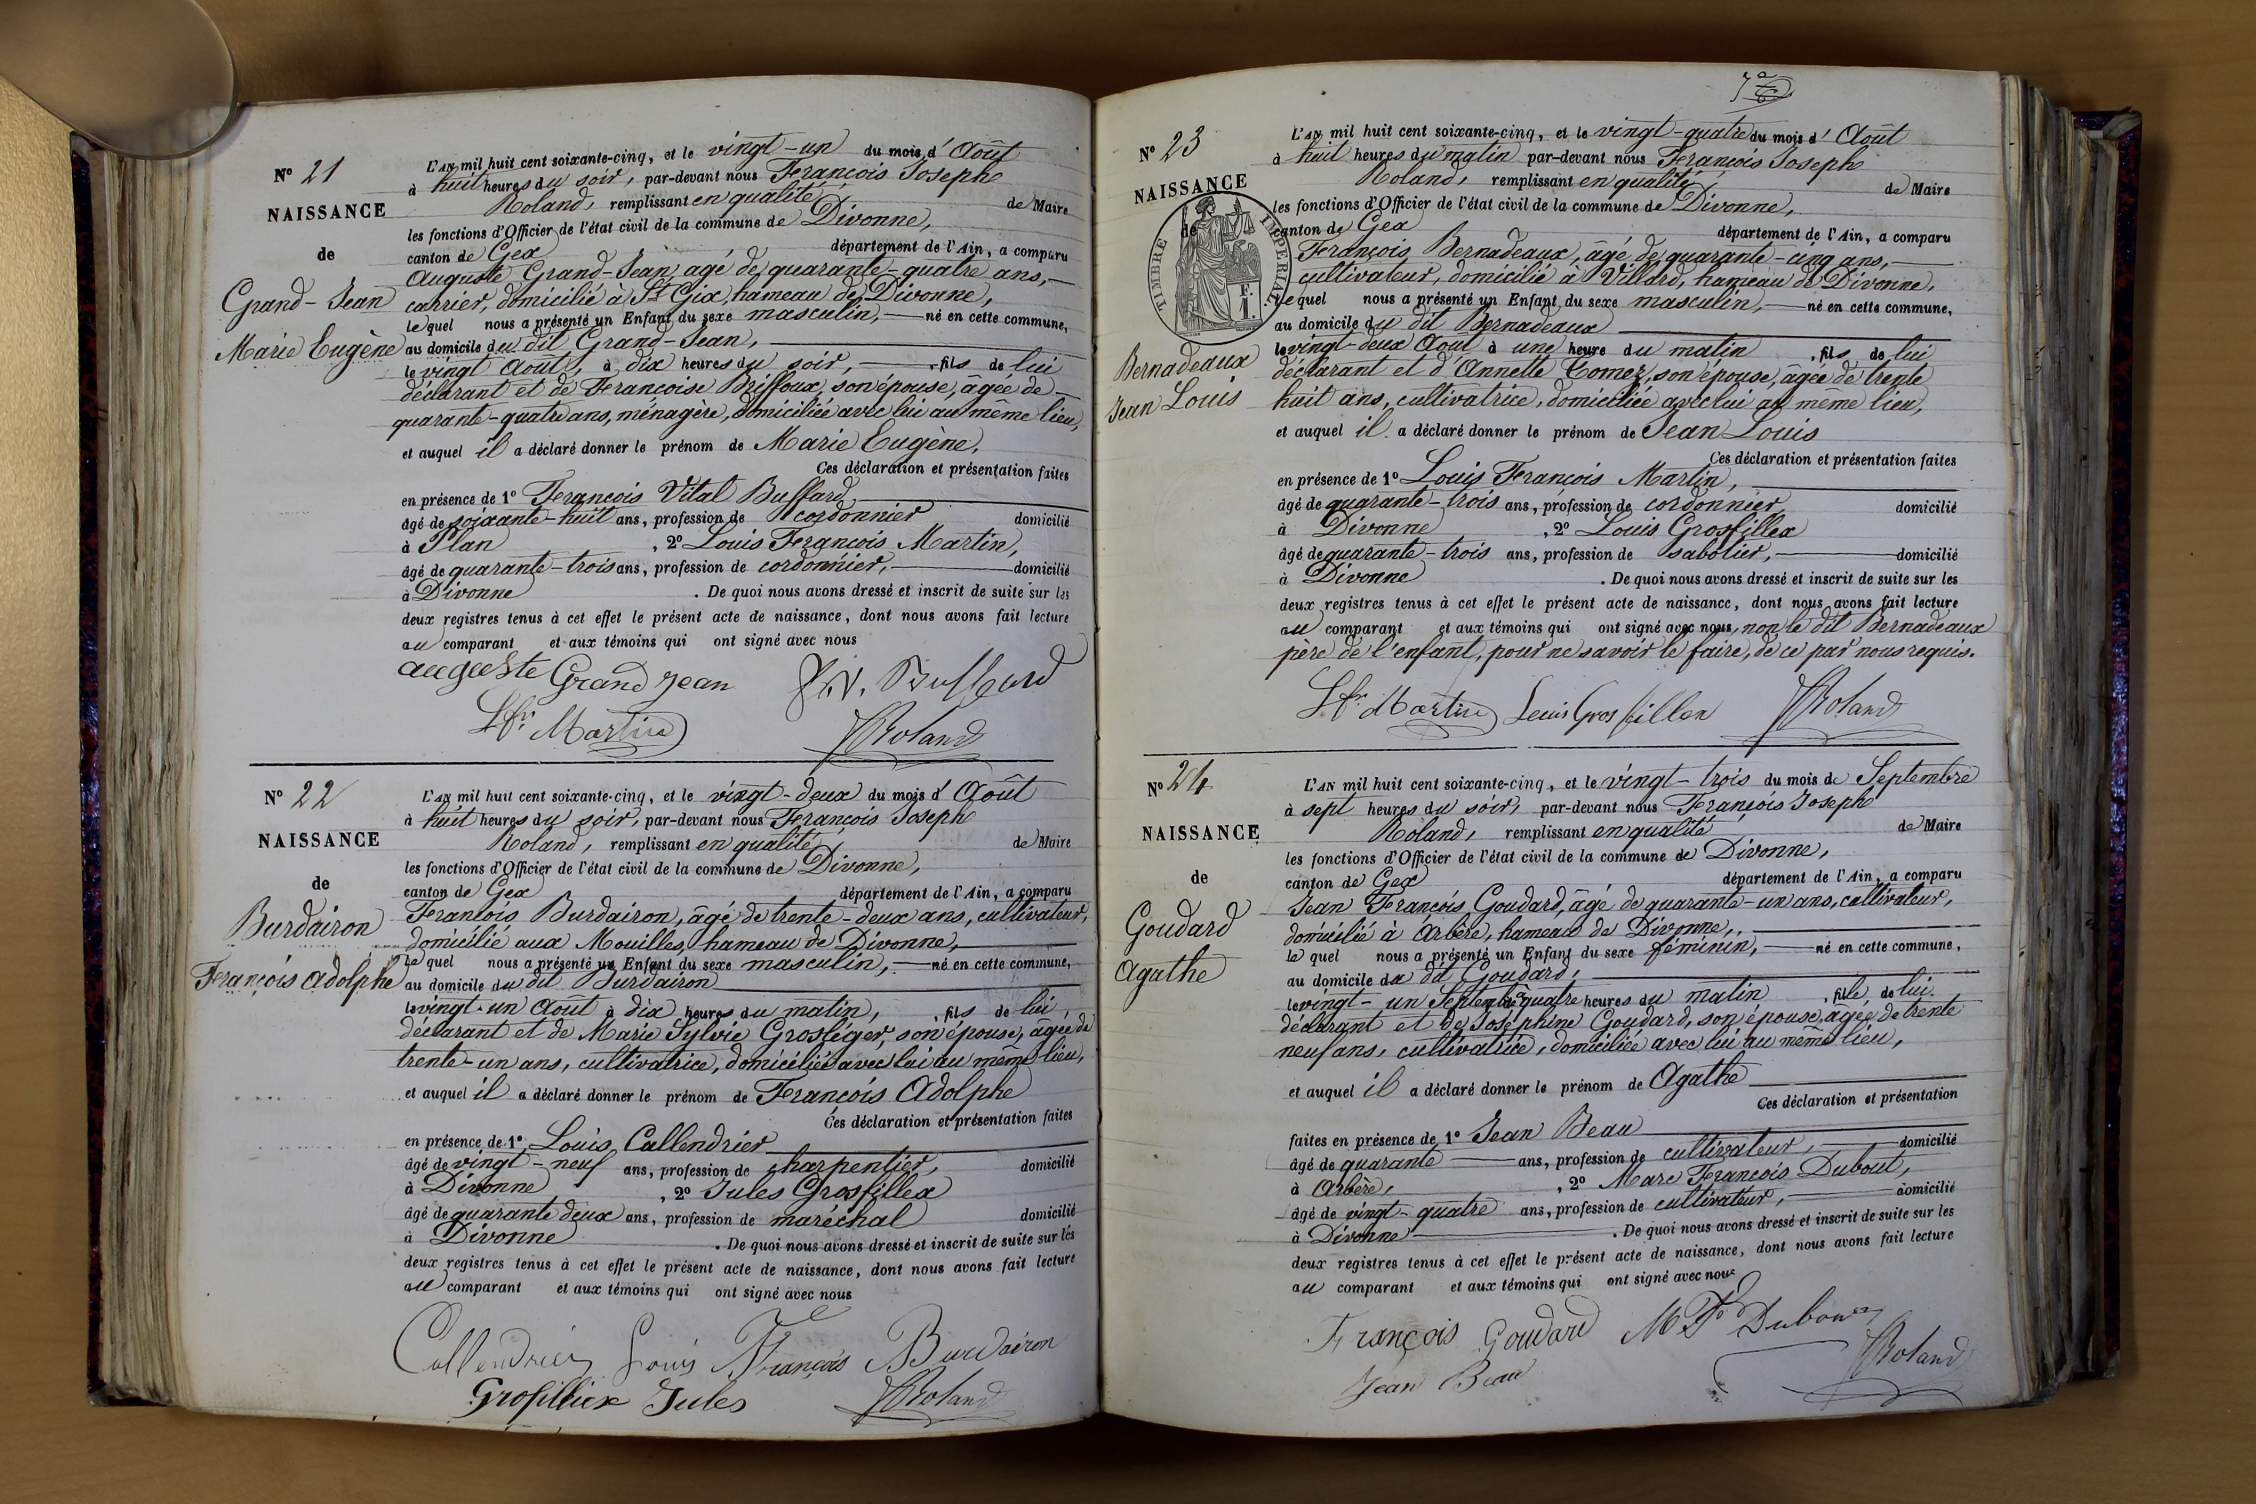 Nº 21
NAISSANCE
de
Grand-Jean
Marie Eugène
L'AN mil huit cent soixante-cinq, et le vingt-un du mois d'Août
à huit heures du soir, par-devant nous François Joseph
Roland, remplissant en qualité de Maire
les fonctions d'Officier de l'état civil de la commune de Divonne,
canton de Gex département de l'Ain, a comparu
Auguste Grand-Jean, agé de quarante-quatre ans,
carrier, domicilié à St Gix, hameau de Divonne,
lequel nous a présenté un Enfant du sexe masculin, né en cette commune,
au domicile du dit Grand-Jean,
le vingt Août, à dix heures du soir, fils de lui
déclarant et de Françoise Briffoux, son épouse, âgée de
quarante-quatre ans, ménagère, domiciliée avec lui au même lieu,
et auquel il a déclaré donner le prénom de Marie Eugène.
Ces déclaration et présentation faites
en présence de 1º François Vital Buffard,
âgé de soixante-huit ans, profession de cordonnier domicilié
à Plan, 2º Louis François Martin,
âgé de quarante-trois ans, profession de cordonnier, domicilié
à Divonne. De quoi nous avons dressé et inscrit de suite sur les
deux registres tenus à cet effet le présent acte de naissance, dont nous avons fait lecture
au comparant et aux témoins qui ont signé avec nous
auguste Grand jean F.V. Buffard
L fs Martin JRoland
Nº 22
NAISSANCE
de
Burdairon
François Adolphe
L'AN mil huit cent soixante-cinq, et le vingt-deux du mois d'Août
à huit heures du soir, par-devant nous François Joseph
Roland, remplissant en qualité de Maire
les fonctions d'Officier de l'état civil de la commune de Divonne,
canton de Gex département de l'Ain, a comparu
François Burdairon, âgé de trente-deux ans, cultivateur,
domicilié aux Mouilles, hameau de Divonne,
Lequel nous a présenté un Enfant du sexe masculin, né en cette commune,
au domicile du dit Burdairon
le vingt-un Août à dix heures du matin, fils de lui,
déclarant et de Marie Sylvie Grosléger, son épouse, âgée de
trente-un ans, cultivatrice, domiciliée avec lui au même lieu,
et auquel il a déclaré donner le prénom de François Adolphe
Ces déclaration et présentation faites
en présence de 1º Louis Callendrier
âgé de vingt-neuf ans, profession de charpentier, domicilié
à Divonne, 2º Jules Grosfillex
âgé de quarante deux ans, profession de maréchal domicilié
à Divonne. De quoi nous avons dressé et inscrit de suite sur les
deux registres tenus à cet effet le présent acte de naissance, dont nous avons fait lecture
au comparant et aux témoins qui ont signé avec nous
Callendrier Louis François Burdairon
Grosfillex Jules JRoland
Nº 23
NAISSANCE
de
TIMBRE IMPÉRIAL
F.
1.
Bernadeaux
Jean Louis
L'AN mil huit cent soixante-cinq, et le vingt-quatre du mois d'Août
à huit heures du matin par-devant nous François Joseph
Roland, remplissant en qualité de Maire
les fonctions d'Officier de l'état civil de la commune de Divonne,
canton de Gex département de l'Ain, a comparu
François Bernadeaux, âgé de quarante-cinq ans,
cultivateur, domicilié à Villard, hameau de Divonne,
Lequel nous a présenté un Enfant du sexe masculin, né en cette commune,
au domicile du dit Bernadeaux
le vingt-deux Aout à une heure du matin, fils de lui
déclarant et d'Annette Comez, son épouse, âgée de trente
huit ans, cultivatrice, domiciliée avec lui au même lieu,
et auquel il a déclaré donner le prénom de Jean Louis
Ces déclaration et présentation faites
en présence de 1º Louis François Martin,
âgé de quarante-trois ans, profession de cordonnier domicilié
à Divonne, 2º Louis Grosfillex
âgé de quarante-trois ans, profession de sabotier, domicilié
à Divonne. De quoi nous avons dressé et inscrit de suite sur les
deux registres tenus à cet effet le présent acte de naissance, dont nous avons fait lecture
au comparant et aux témoins qui ont signé avec nous, non le dit Bernadeaux
père de l'enfant, pour ne savoir le faire, de ce par nous requis.
L fs Martin Louis Grosfillex JRoland
Nº 24
NAISSANCE
de
Goudard
Agathe
L'AN mil huit cent soixante-cinq, et le vingt-trois du mois de Septembre
à sept heures du soir, par-devant nous François Joseph
Roland, remplissant en qualité de Maire
les fonctions d'Officier de l'état civil de la commune de Divonne,
canton de Gex département de l'Ain, a comparu
Jean François Goudard, âgé de quarante-un ans, cultivateur,
domicilié à Arbère, hameau de Divonne,
lequel nous a présenté un Enfant du sexe féminin, né en cette commune,
au domicile du dit Goudard,
le vingt-un Septembre à quatre heures du matin, fille de lui
déclarant et de Joséphine Goudard, son épouse, âgée de trente
neuf ans, cultivatrice, domiciliée avec lui au même lieu,
et auquel il a déclaré donner le prénom de Agathe
Ces déclaration et présentation
faites en présence de 1º Jean Beau
âgé de quarante ans, profession de cultivateur, domicilié
à Arbère, 2º Marc François Dubout,
âgé de vingt-quatre ans, profession de cultivateur, domicilié
à Divonne. De quoi nous avons dressé et inscrit de suite sur les
deux registres tenus à cet effet le présent acte de naissance, dont nous avons fait lecture
au comparant et aux témoins qui ont signé avec nous
François Goudard M Fs Dubout
Jean Beau JRoland